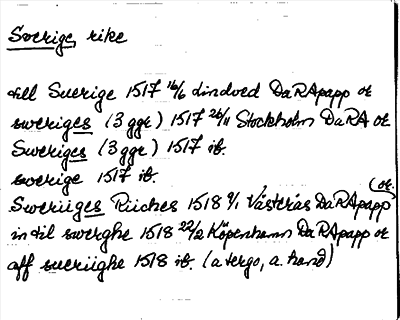 Sverige, rike
till Suerige 1517 16/6 Lindved DaRApapp or
sweriges (3 ggr) 1517 26/11 Stockholm DaRA or
Sweriges (3 ggr) 1517 ib.
swerige 1517 ib.
Sweriiges Riiches 1518 9/1 Västerås DaRApapp (or.
in til swerghe 1518 22/2 Köpenhamn DaRApapp or
aff sueriighe 1518 ib. (a tergo, a. hand)